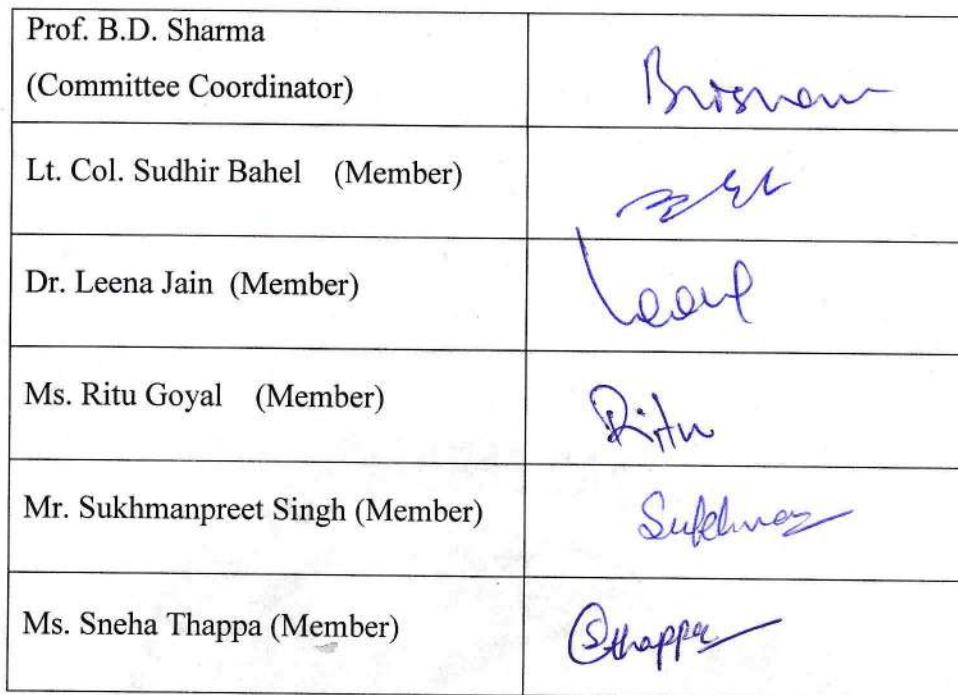 Prof. B.D. Sharma
(Committee Coordinator)
Lt. Col. Sudhir Bahel (Member)
Dr. Leena Jain (Member)
Ms. Ritu Goyal (Member)
Ritu
Mr. Sukhmanpreet Singh (Member)
Ms. Sneha Thappa (Member)
Sthappa